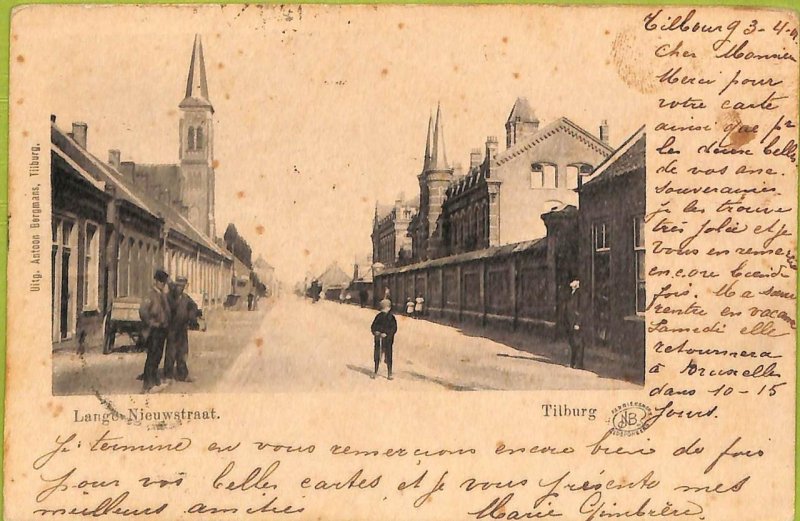 Uitg. Antoon Bergmans, Tilburg.
Tilbourg 3-4-
Cher Monsieur
Merci pour
votre carte
ainsi que pr
les deux belles
de vos anc.
souveraines.
Je les trouve
très jolie et je
vous en remercie
encore bien de
fois. Ma sœur
rentre en vacance
Samedi elle
retournera
à Bruxelles
dans 10-15
Jours.
Lange Nieuwstraat.
Tilburg
JNB
Je termine en vous remercions encore bien de fois
pour vos belles cartes et je vous présente mes
meilleurs amitiés Marie Gimbrère